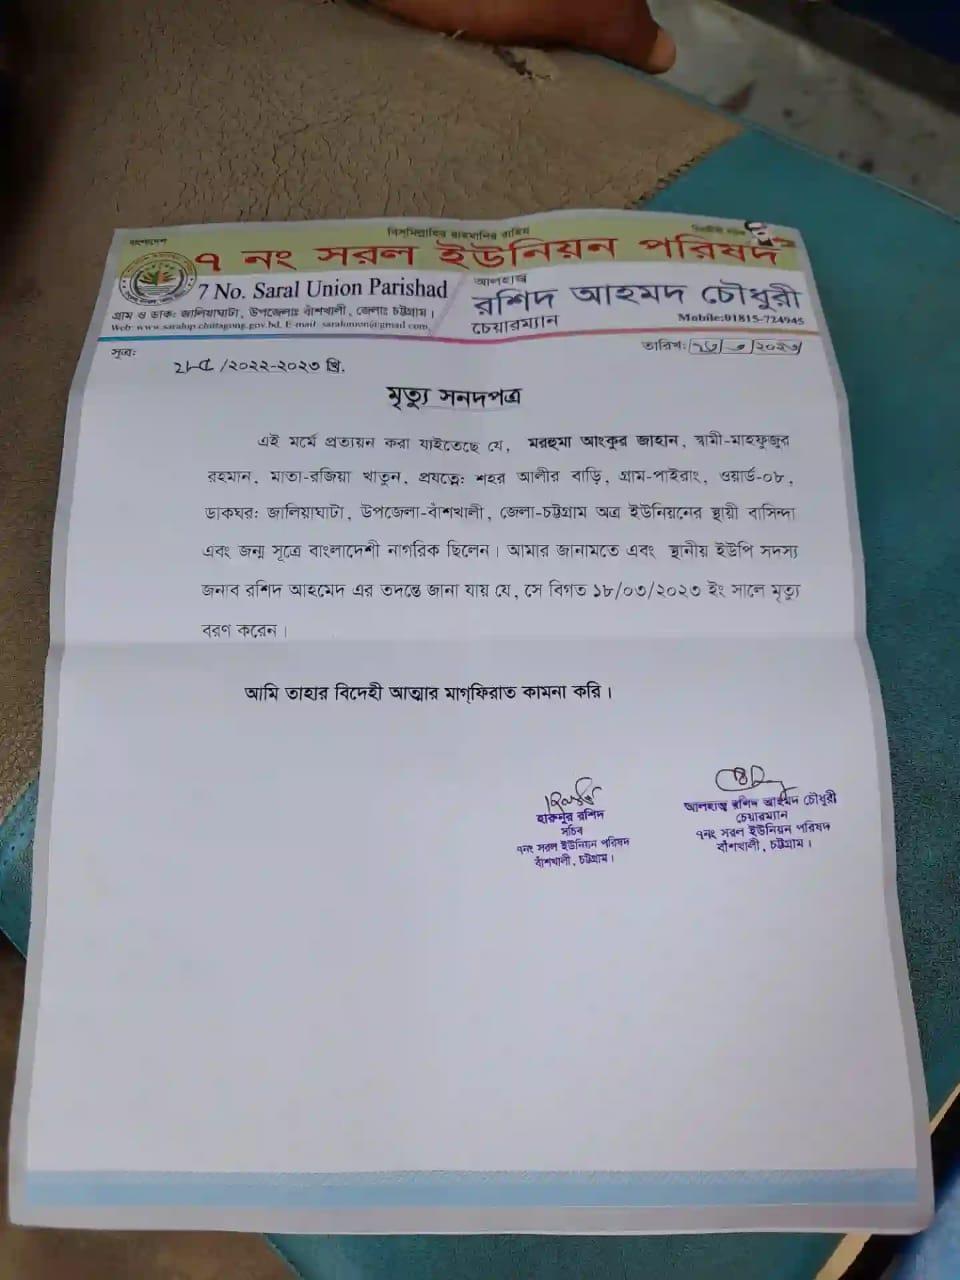 বিস্‌মিল্লাহির রাহমানির রাহিম
বাংলাদেশ
৭ নং সরল ইউনিয়ন পরিষদ
7 No. Saral Union Parishad
গ্রাম ও ডাক: জালিয়াঘাটা, উপজেলাঃ বাঁশখালী, জেলাঃ চট্টগ্রাম।
Web: www.saralup.chittagong.gov.bd, E-mail: saralunion@gmail.com,
আলহাজ্ব
রশিদ আহমদ চৌধুরী
চেয়ারম্যান
Mobile:01815-724945
সূত্র:
২৮৫/২০২২-২০২৩ খ্রি.
তারিখ:
মৃত্যু সনদপত্র
এই মর্মে প্রত্যয়ন করা যাইতেছে যে, মরহুমা আংকুর জাহান, স্বামী-মাহফুজুর
রহমান, মাতা-রজিয়া খাতুন, প্রযত্নে: শহর আলীর বাড়ি, গ্রাম-পাইরাং, ওয়ার্ড-০৮,
ডাকঘর: জালিয়াঘাটা, উপজেলা-বাঁশখালী, জেলা-চট্টগ্রাম অত্র ইউনিয়নের স্থায়ী বাসিন্দা
এবং জন্ম সূত্রে বাংলাদেশী নাগরিক ছিলেন। আমার জানামতে এবং স্থানীয় ইউপি সদস্য
জনাব রশিদ আহমেদ এর তদন্তে জানা যায় যে, সে বিগত ১৮/০৩/২০২৩ ইং সালে মৃত্যু
বরণ করেন।
আমি তাহার বিদেহী আত্মার মাগ্‌ফিরাত কামনা করি।
হারুনুর রশিদ
সচিব
৭নং সরল ইউনিয়ন পরিষদ
বাঁশখালী, চট্টগ্রাম।
আলহাজ্ব রশিদ আহমদ চৌধুরী
চেয়ারম্যান
৭নং সরল ইউনিয়ন পরিষদ
বাঁশখালী, চট্টগ্রাম।